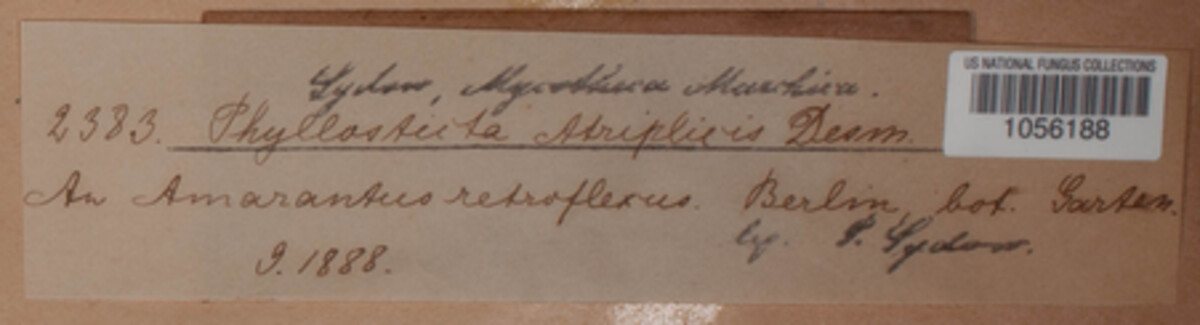 Sydow, Mycotheca Marchica.
2383. Phyllosticta Atriplicis Desm.
US NATIONAL FUNGUS COLLECTIONS
1056188
An Amarantus retroflexus. Berlin, bot. Garten.
lg. P. Sydow.
9. 1888.